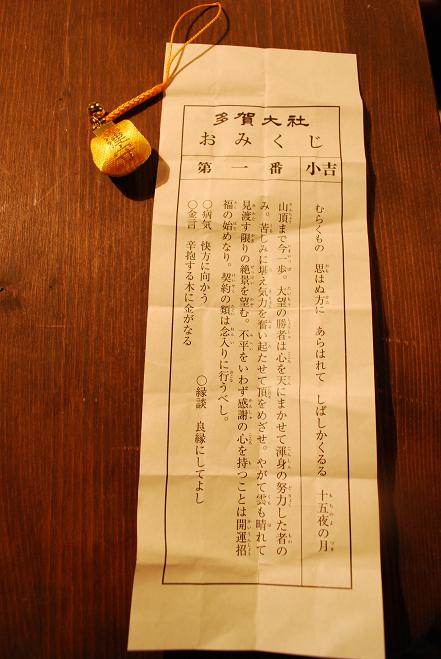 多賀大社
おみくじ
第一番
小吉
むらくもの 思はぬ方に あらはれて しばしかくるる 十五夜の月
山頂まで今一歩。大望の勝者は心を天にまかせて渾身の努力した者の
み。苦しみに堪え気力を奮い起たせて頂をめざせ。やがて雲も晴れて
見渡す限りの絶景を望む。不平をいわず感謝の心を持つことは開運招
福の始めなり。契約の類は念入りに行うべし。
○病気 快方に向かう ○縁談 良縁にしてよし
○金言 辛抱する木に金がなる